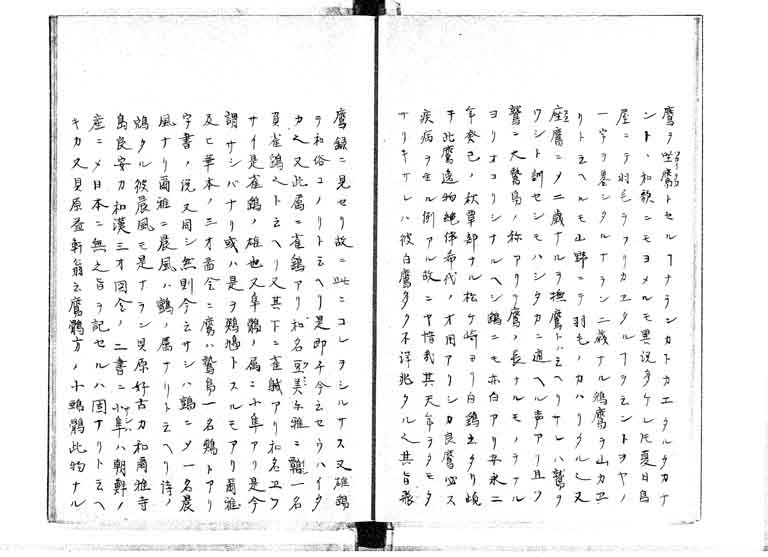 鷹ヲ坐鷹トセルコナランカトカエタルタカナ
ント、和歌ニモヨメルモ異説多ケレ𪜈夏日鳥
屋ニテ羽毛ヲフリカエタルフヲエントヲヤノ
一字リ畧シタルナラン二歳ナル鴘鷹ヲ山カエ
リト云ヘルモ山野ニテ羽毛ノカハリタル之又
座鷹ニメ二歳ナルヲ撫鷹トハ云ヘリサレハ鷲ヲ
ワシト訓センモハシタカニ通ヘル声アリ且ツ
鷲ニ大鷲鳥ノ称アリテ鷹ノ長ナルモノヲナル
ヨリオコリシナルヘシ鷂ニモ赤白アリ安永二
年癸巳ノ秋草部ナル松ケ崎ヨリ白鷂出タリ頃
年此鷹逸物絶倫希代ノ才用アリシカ良鷹必ス
疾病ヲ生ル例アル故ニヤ惜哉其天年ヲタモタ
サリキサレハ彼白鷹多ク不祥兆タル之其旨飛
鷹録ニ見セリ故ニ此ニコレヲシルサス又雄鷂
ヲ和俗コノリト云ヘリ是即チ今云セウハイタ
カ之又此属ニ雀鷂アリ和名豆美尓雅ニ一名
負雀鷂之ト云ヘリ又其下ニ雀𪀚アリ和名エツ
サイ是雀鷂ノ雄也又隼鶻ノ属ニ小隼アリ是今
謂サシバナリ或ハ是ヲ鵊鳩トスルモアリ爾雅
及ヒ華本ノ三才圖会ニ鷹ハ鷲鳥一名鵊トアリ
字書ノ説又同シ然則今云サシハ鷂ニメ一名晨
風ナリ爾雅ニ晨風ハ鸇ノ属ナリト云ヘリ詩ノ
鴥タル彼晨風モ是ナラン貝原好古カ和爾雅寺
島良安カ和漢三才図会ノ二書ニ小隼ハ朝鮮ノ
産ニメ日本ニ無之旨ヲ記セルハ固ナリト云ヘ
キカ又貝原益軒翁云鷹鶻方ノ小鴘鶻此物ナル